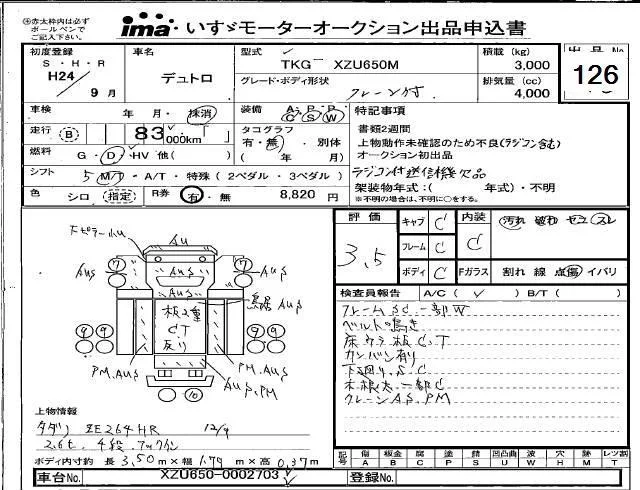 ※赤太枠内は必ず
ボールペンで
ご記入下さい。
ima いすゞモーターオークション出品申込書
初度登録
S・H・R
H24
9 月
車名
デュトロ
型式
TKG XZU650M
グレード・ボディ形状
クレーン付
積載 (kg)
3,000
排気量 (cc)
4,000
出品No.
126
車検
年 月・抹消
走行 (B) 83 000km
燃料
G・D・HV 他( )
シフト 5 M/T・A/T・特殊 (2ペダル・3ペダル)
色 シロ (指定) R券 有・無 8,820 円
装備 A・P・P
C S W
タコグラフ
有・無・別体
( 年 月)
特記事項
書類2週間
上物動作未確認のため不良(ラジコン含む)
オークション初出品
ラジコン付送信機欠品
架装物年式:( 年式)・不明
※不明の場合は、不明に○をする。
評価
3.5
キャブ C
フレーム C
ボディ C
内装
C
Fガラス
汚れ 破れ セコ スレ
割れ 線 点傷 イバリ
検査員報告 A/C ( ) B/T ( )
フレームSC 一部W
ベルト鳴き
床ウラ板C,T
カンバン有り
下廻り、S.C
木根太一部C
クレーンAS,PM
AU
AUS
AUS
AUS
AUS
7
7
板2重
CT
反り
鳥居AUS
9 9
9 9
PM.AUS
PM.AUS
AUS,PM
10
上物情報
タダノ ZE264HR 12/9
2.6t. 4段. フックイン
ボディ内寸約 長 3.50m×幅 1.79m×高 0.37m
記号
傷 板金 腐 塗 錆 凹凸曲 波 穴 跡 レツ割
A B C P S U W H M T
車台No. XZU650-0002703
登録No.